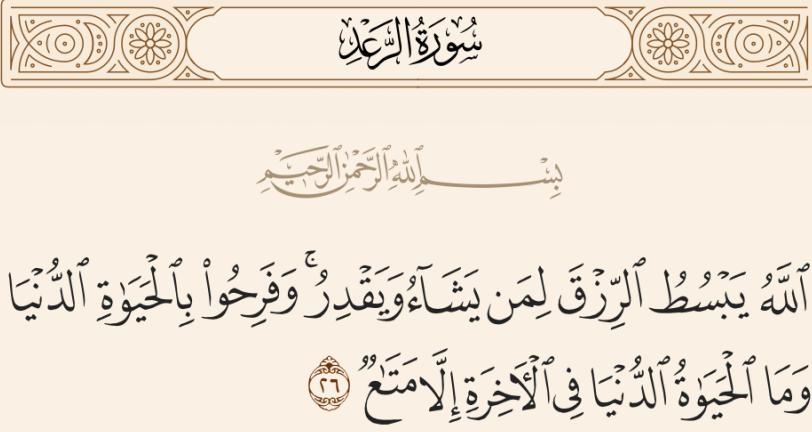 سُورَةُ الرَّعْدِ
بِسْمِ اللَّهِ الرَّحْمَٰنِ الرَّحِيمِ
ٱللَّهُ يَبْسُطُ ٱلرِّزْقَ لِمَن يَشَآءُ وَيَقْدِرُ ۚ وَفَرِحُوا۟ بِٱلْحَيَوٰةِ ٱلدُّنْيَا
وَمَا ٱلْحَيَوٰةُ ٱلدُّنْيَا فِى ٱلْـَٔاخِرَةِ إِلَّا مَتَـٰعٌ ٢٦